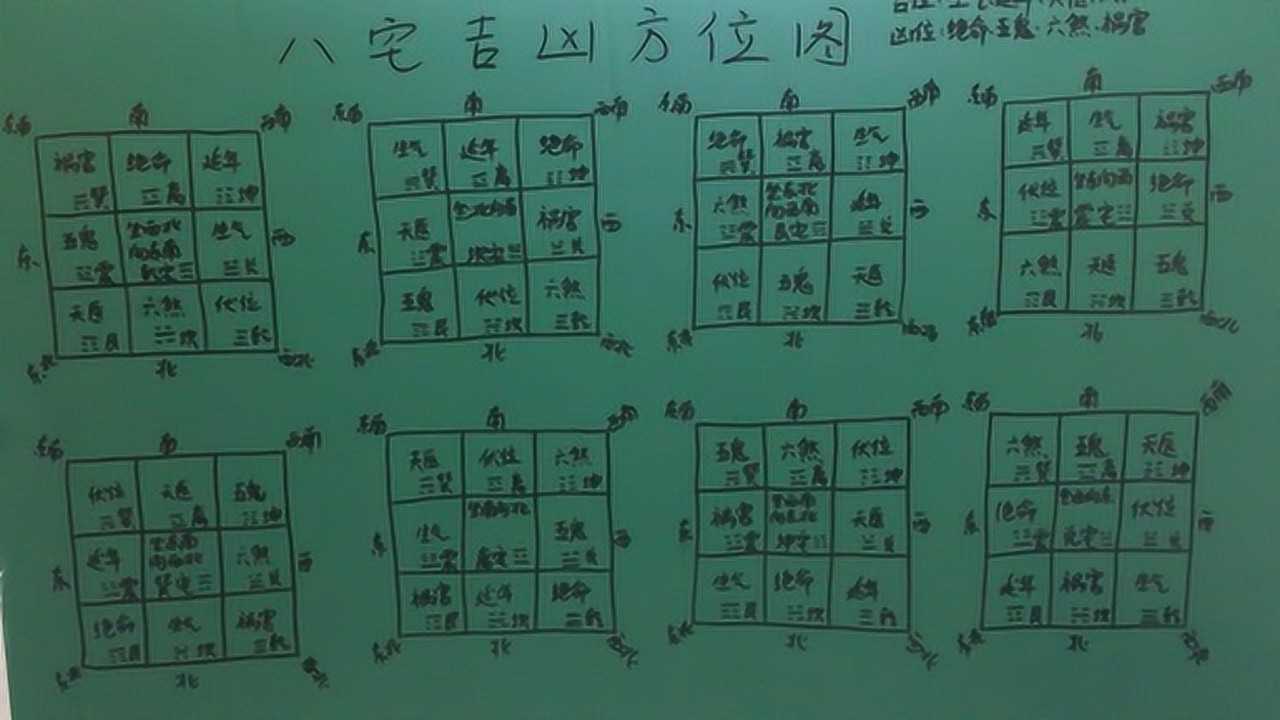 八宅吉凶方位图
凶位:绝命·五鬼·六煞·祸害
东南 南 西南
祸害 ☴巽 绝命 ☲离 延年 ☷坤
东 五鬼 ☳震 坐西北向东南 乾宅☰ 生气 ☱兑 西
天医 ☶艮 六煞 ☵坎 伏位 ☰乾
东北 北 西北
东南 南 西南
生气 ☴巽 延年 ☲离 绝命 ☷坤
东 天医 ☳震 坐北向南 坎宅☵ 祸害 ☱兑 西
五鬼 ☶艮 伏位 ☵坎 六煞 ☰乾
东北 北 西北
东南 南 西南
绝命 ☴巽 祸害 ☲离 生气 ☷坤
东 六煞 ☳震 坐东北向西南 艮宅☶ 延年 ☱兑 西
伏位 ☶艮 五鬼 ☵坎 天医 ☰乾
东北 北 西北
东南 南 西南
延年 ☴巽 生气 ☲离 祸害 ☷坤
东 伏位 ☳震 坐东向西 震宅☳ 绝命 ☱兑 西
六煞 ☶艮 天医 ☵坎 五鬼 ☰乾
东北 北 西北
东南 南 西南
伏位 ☴巽 天医 ☲离 五鬼 ☷坤
东 延年 ☳震 坐东南向西北 巽宅☴ 六煞 ☱兑 西
绝命 ☶艮 生气 ☵坎 祸害 ☰乾
东北 北 西北
东南 南 西南
天医 ☴巽 伏位 ☲离 六煞 ☷坤
东 生气 ☳震 坐南向北 离宅☲ 五鬼 ☱兑 西
祸害 ☶艮 延年 ☵坎 绝命 ☰乾
东北 北 西北
东南 南 西南
五鬼 ☴巽 六煞 ☲离 伏位 ☷坤
东 祸害 ☳震 坐西南向东北 坤宅☷ 天医 ☱兑 西
生气 ☶艮 绝命 ☵坎 延年 ☰乾
东北 北 西北
东南 南 西南
六煞 ☴巽 五鬼 ☲离 天医 ☷坤
东 绝命 ☳震 坐西向东 兑宅☱ 伏位 ☱兑 西
延年 ☶艮 祸害 ☵坎 生气 ☰乾
东北 北 西北